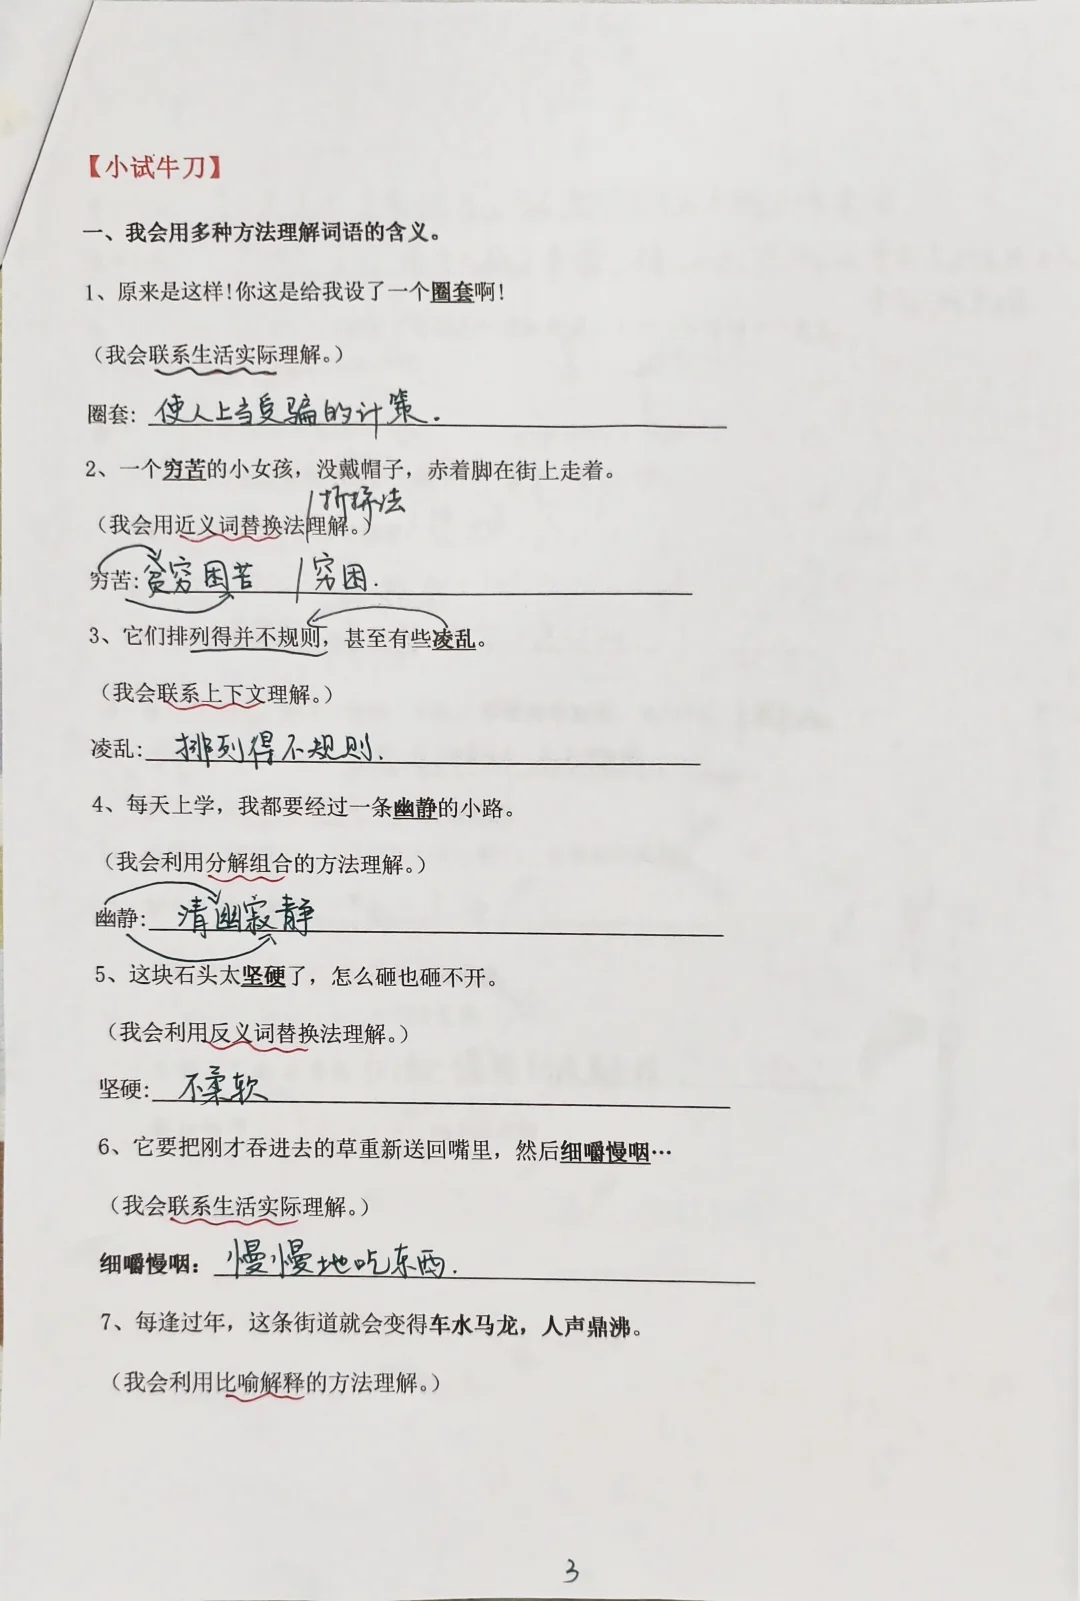 【小试牛刀】
一、我会用多种方法理解词语的含义。
1、原来是这样!你这是给我设了一个圈套啊!
（我会联系生活实际理解。）
圈套: 使人上当受骗的计策.
2、一个穷苦的小女孩，没戴帽子，赤着脚在街上走着。
/拆拼法
（我会用近义词替换法理解。）
穷苦: 贫穷困苦 / 穷困.
3、它们排列得并不规则，甚至有些凌乱。
（我会联系上下文理解。）
凌乱: 排列得不规则.
4、每天上学，我都要经过一条幽静的小路。
（我会利用分解组合的方法理解。）
幽静: 清幽寂静
5、这块石头太坚硬了，怎么砸也砸不开。
（我会利用反义词替换法理解。）
坚硬: 不柔软
6、它要把刚才吞进去的草重新送回嘴里，然后细嚼慢咽…
（我会联系生活实际理解。）
细嚼慢咽: 慢慢地吃东西.
7、每逢过年，这条街道就会变得车水马龙，人声鼎沸。
（我会利用比喻解释的方法理解。）
3